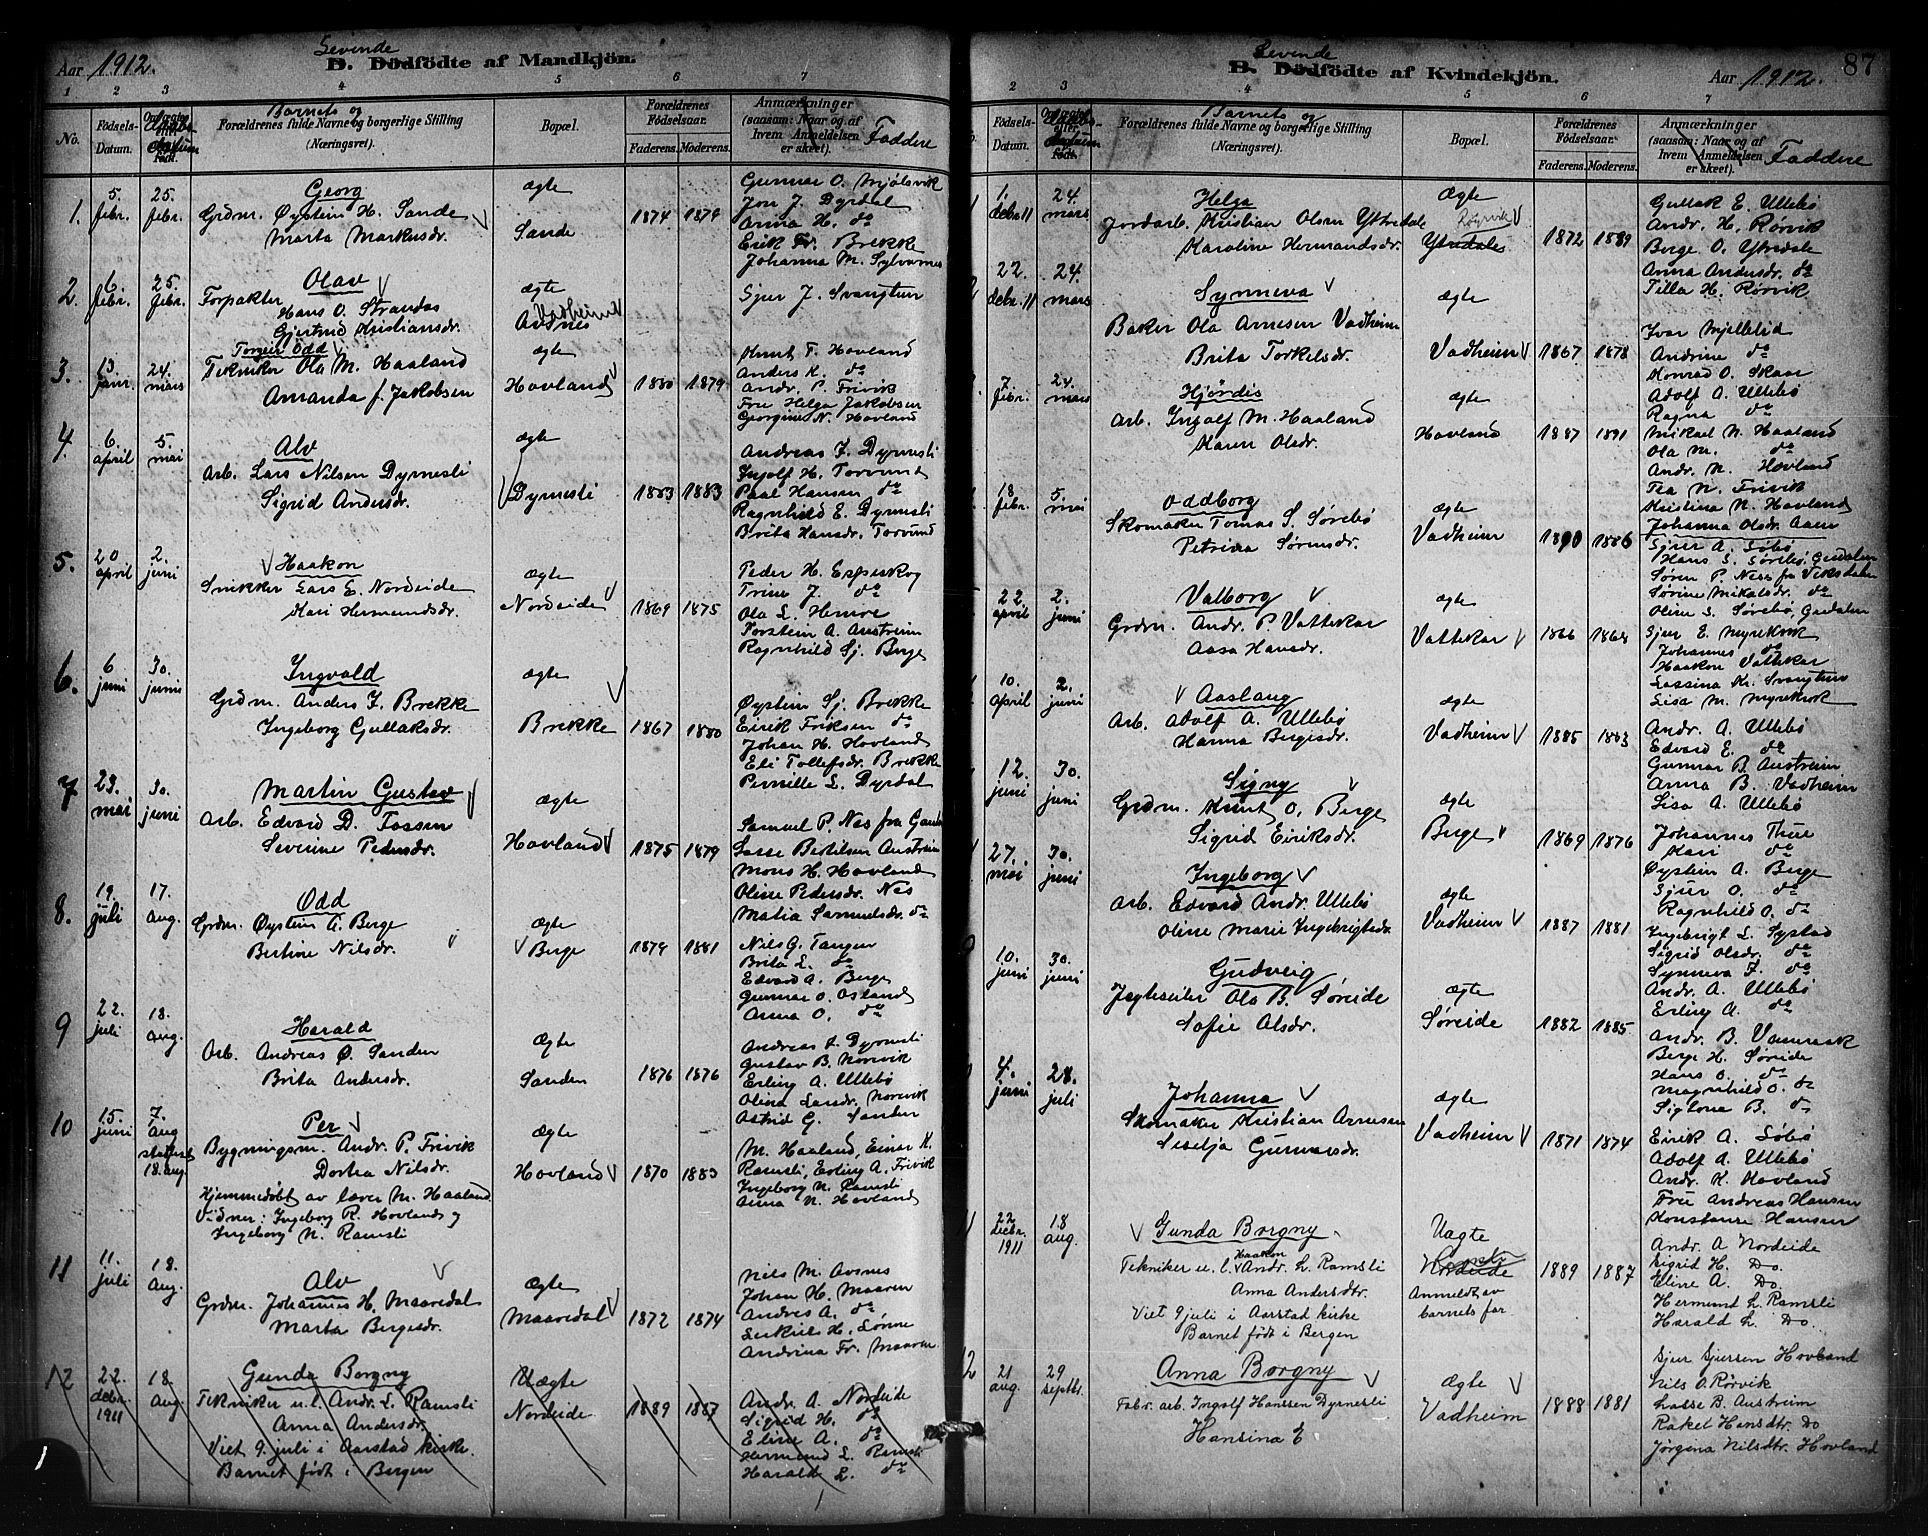 Aar 1912.
Levinde
D. Dödfödte af Mandkjön.
1 2 3 4 5 6 7
No.
Födsels-Datum.
Barnets og
Forældrenes fulde Navne og borgerlige Stilling
(Næringsvei).
Bopæl.
Forældrenes Födselsaar.
Faderens. Moderens.
Anmærkninger
(saasom: Naar og af
hvem Anmeldelsen
er skeet).
Faddere
1. 5. febr. 25. febr.
Georg
Grdm. Øystein H. Sande
Marta Markusdr.
ægte
Sande
1874 1879
Gunnar O. Mjølsvik
Jon J. Dyrdal
Anna H. do
Erik Fr. Brekke
Johanna M. Sylvarnes
2. 6. febr. 25. febr.
Olav
Forpakter
Hans O. Strandos
Gjertrud Kristiansdr.
ægte
Vadheim
Avsnes
Sjur J. Svangtun
3. 13. janr. 24. mars
Torgeir Odd
Tekniker Ola M. Haaland
Amanda f. Jakobsen
ægte
Hovland
1880 1879
Knut T. Hovland
Anders K. do
Andr. P. Frivik
Frue Helga Jakobsen
Georgine N. Hovland
4. 6. april 5. mai
Alv
Arb. Lars Nilsen Dyrnesli
Sigrid Andersdr.
ægte
Dyrnesli
1883 1883
Andreas J. Dyrnesli
Ingolf H. Torvund
Paal Hansen do
Ragnhild E. Dyrnesli
Brita Hansdr. Torvund
5. 20 april 2. juni
Haakon
Snikker Lars E. Nordeide
Kari Hermundsdr.
ægte
Nordeide
1869 1875
Peder H. Espeskog
Trine J. do
Ola L. Henroe
Torstein A. Austreim
Ragnhild Sj. Berge
6. 6 juni 30. juni
Ingvald
Grdm. Anders J. Brekke
Ingeborg Gullaksdr.
ægte
Brekke
1867 1880
Øystein Sj. Brekke
Eirik Eriksen do
Johan H. Hovland
Eli Tollefsdr. Brekke
Pernille L. Dyrdal
7 23. mai 30. juni
Martin Gustav
Arb. Edvard D. Fossen
Severine Pedersdr.
ægte
Hovland
1875 1879
Samuel P. Nes fra Gaular
Lasse Bertilsen Austreim
Mons H. Hovland
Oline Pedersdr. Nes
Matia Samuelsdr. do
8. 19. juli 17. aug.
Odd
Grdm. Øystein A. Berge
Bertine Nilsdr.
ægte
Berge
1879 1881
Nils G. Tangen
Brita L. do
Edvard A. Berge
Gunnar O. Osland
Anna O. do
9 22. juli 18. aug.
Harald
Arb. Andreas O. Sanden
Brita Andersdr.
ægte
Sanden
1876 1876
Andreas J. Dyrnesli
Gustav B. Norevik
Erling A. Ullebø
Olina Larsdr. Norevik
Astrid G. Sanden
10 15. juni 7. aug
stadfest 18. aug.
Per
Bygningsm. Andr. P. Frivik
Dortea Nilsdr.
Hjemmedøbt av lærer M. Haaland
Vidner: Ingeborg R. Hovland og
Ingeborg N. Ramsli
Ægte
Hovland
1870 1883
M. Haaland, Einar K.
Ramsli, Erling A. Frivik
Ingeborg N. Ramsli
Anna N. Hovland
11 11. juli 18. aug.
Alv
Grdm. Johannes H. Maaredal
Marta Bergesdr.
Ægte
Maaredal
1872 1874
Nils M. Avsnes
Johan H. Maaren
Andreas A. do
Andrina Fr. Maaren
12 22. debr. 1911 18. aug.
Gunda Borgny
Tekniker u. l. Andr. L. Ramsli
Anna Andersdr.
Viet 9. juli i Aarstad kirke.
Barnet født i Bergen
Uægte
Nordeide
1889 1887
Andr. A. Nordeide
Sigrid H. do
Eline A. do
Hermund L. Ramsli
Harald L. do
Levinde
D. Dödfödte af Kvindekjön.
Aar 1912.
87
2 3 4 5 6 7
Födsels-Datum.
Barnets og
Forældrenes fulde Navne og borgerlige Stilling
(Næringsvei).
Bopæl.
Forældrenes Födselsaar.
Faderens. Moderens.
Anmærkninger
(saasom: Naar og af
hvem Anmeldelsen
er skeet).
Faddere
1. debr. 11 24. mars
Helga
Jordarb. Kristian Olsen Ytredale
Karoline Hermandsdr.
Ægte
Rørvik
Ytredales
1872 1889
Gullak E. Ullebø
Andr. H. Rørvik
Berge O. Ytredale
Anna Andersdr. do
Tilla H. Rørvik
22. debr. 11 24. mars
Synneva
Baker Ola Arnesen Vadheim
Brita Torkelsdr.
ægte
Vadheim
1867 1878
Ivar Mjelletid
Andrine do
Konrad O. Skaar
Adolf A. Ullebø
Ragna do
7. febr. 24. mars
Hjørdis
Arb. Ingolf M. Haaland
Karen Olsdr.
ægte
Hovland
1887 1891
Mikael N. Haaland
Ola M. do
Andr. N. Hovland
Tea N. Frivik
Kristina N. Hovland
18. febr. 5. mai
Oddborg
Skomaker Tomas S. Sørebø
Petrina Sørensdr.
ægte
Vadheim
1890 1886
Johanna Olsdr. Aaen
Sjur A. Søbø
Hans S. Sørebø, Guddalen
Søren P. Ness fra Viksdalen
Sørine Mikalsdr. do
Oline S. Sørebø, Gudalen
22. april 2. juni
Valborg
Grdm. Andr. P. Vattekar
Aasa Hansdr.
ægte
Vattekar
1866 1868
Sjur E. Myrekvik
Johannes do
Haakon Vattekar
Lassina Kr. Svangtun
Lisa M. Myrekvik
10. april 2. juni
Aaslaug
Arb. Adolf A. Ullebø
Hanna Bergesdr.
ægte
Vadheim
1885 1883
Andr. A. Ullebø
Edvard E. do
Gunnar B. Austreim
Anna B. Vadheim
Lisa A. Ullebø
12. juni 30. juni
Signy
Grdm. Knut O. Berge
Sigrid Eiriksdr.
ægte
Berge
1869 1876
Johannes Thue
Kari do
Øystein A. Berge
Sjur O. do
Ragnhild O. do
27. mai 30. juni
Ingeborg
Arb. Edvard Andr. Ullebø
Oline Marie Ingebrigtsdr.
ægte
Vadheim
1887 1881
Ingebrigt L. Systad
Sigrid Olsdr. do
Synneva J. do
Andr. A. Ullebø
Erling A. do
10. juni 30. juni
Gudveig
Jegteseiler Ola B. Søreide
Sofie Olsdr.
Ægte
Søreide
1882 1885
Andr. B. Vamraak
Berge H. Søreide
Hans O. do
Magnhild O. do
Sigtona B. do
4. juni 28. juli
Johanna
Skomaker Kristian Arnesen
Siselja Gunnarsdr.
ægte
Vadheim
1871 1874
Eirik A. Søbø
Adolf A. Ullebø
Andr. K. Hovland
Frue Andreas Hansen
Konstanse Hansen
22 decbr. 1911 18 aug.
Gunda Borgny
Haakon
Tekniker u. l. Andr. L. Ramsli
Anna Andersdtr.
Viet 9 juli i Aarstad kirke
Barnet født i Bergen
Uægte
Nordeide
Anmeldt av
barnets far.
1889 1887
Andr. A Nordeide
Sigrid H. Do.
Eline A. Do.
Hermund L. Ramsli
Harald L. Do.
12 21 aug. 29 septbr.
Anna Borgny
Fabr. arb. Ingolf Hanssen Dyrnesli
Hansina E
Ægte
Vadheim
1888 1881
Sjur Sjursen Hovland
Nils O. Rørvik
Lasse B. Austreim
Rakel Hansdtr. Do
Jørgena Nilsdtr. Hovland